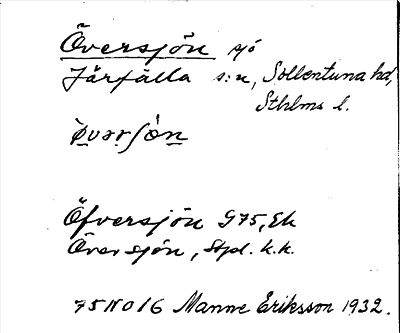 Översjön sjö
Järfälla s:n, Sollentuna hd,
Sthlms l.
Öfversjön G75, Ek
Översjön, Stpl. k.k.
75 NO 16 Manne Eriksson 1932.